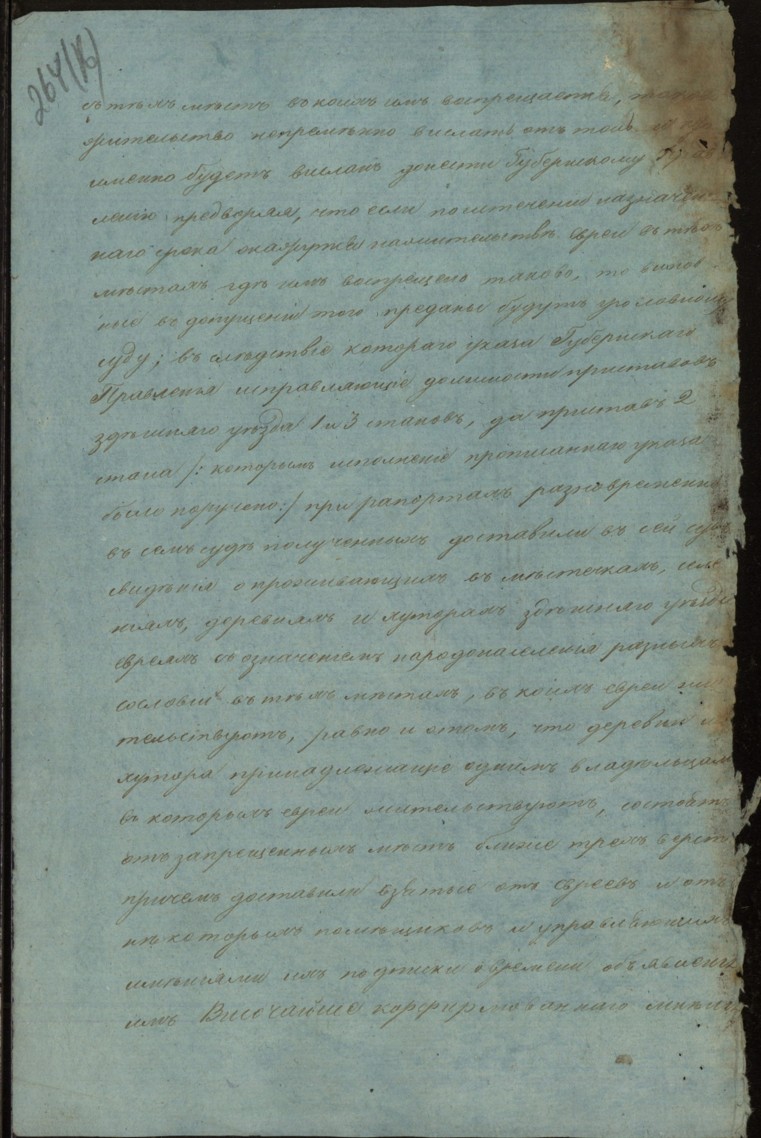 264(16)
въ тѣхъ мѣстъ въ коихъ имъ воспрещается,
жительство непремѣнно выслать отъ толь и
именно будетъ высланъ донести Губернскому Прав
ленію предваряя, что если по истеченіи назначен
наго срока окажутся на жительствѣ евреи въ тѣхъ
мѣстахъ гдѣ имъ воспрещено таково, то винов
ные въ допущеніи того преданы будутъ уголовному
суду; въ слѣдствіе котораго указа Губернскаго
Правленія исправляющіе должности приставовъ
здѣшняго уѣзда 1 и 3 становъ, да приставъ 2
стана /: которымъ исполненіе прописаннаго указа
было поручено:/ при рапортахъ разновременно
въ семъ судѣ полученныхъ доставили въ сей судъ
свидѣнія о проживающихъ въ мѣстечкахъ, селе
ніяхъ, деревняхъ и хуторахъ здѣшняго уѣзда
евреяхъ съ означеніемъ народонаселенія разныхъ
сословій въ тѣхъ мѣстахъ, въ коихъ евреи жи
тельствуютъ, равно и о томъ, что деревни и
хутора принадлежащіе однимъ владѣльцамъ
въ которыхъ евреи жительствуютъ, состоятъ
отъ запрещенныхъ мѣстъ ближе трехъ верстъ
причемъ доставили взятые отъ евреевъ и отъ
нѣкоторыхъ помѣщиковъ и управляющихъ
имѣніями ихъ подписки о времени объявленія
имъ Высочайше конфирмованнаго мнѣнія